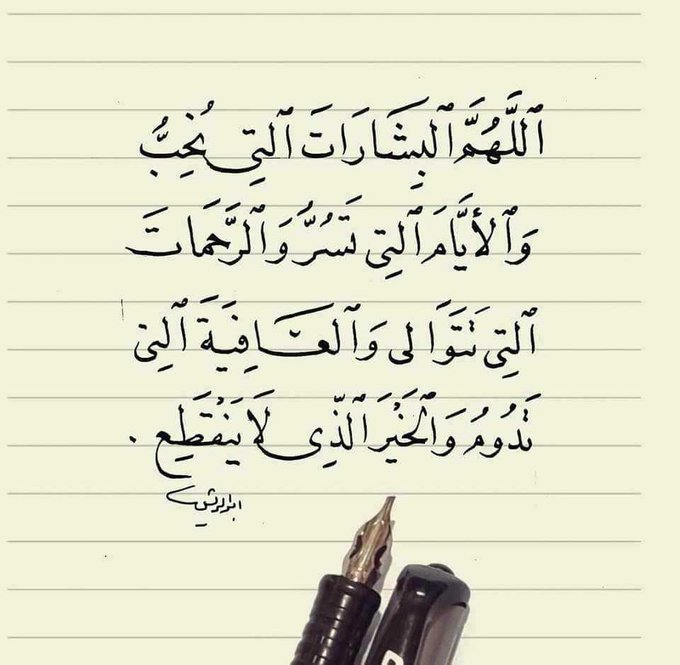 ٱللَّهُمَّ ٱلبِشَارَاتَ ٱلتِي نُحِبُّ
وَٱلأيَّامَ ٱلتِي تَسُرُّ وَٱلرَّحَمَاتَ
ٱلتِي تَتَوَالَى وَٱلعَافِيَةَ ٱلتِي
تَدُومُ وَٱلخَيْرَ ٱلذِّي لَا يَنْقَطِع .